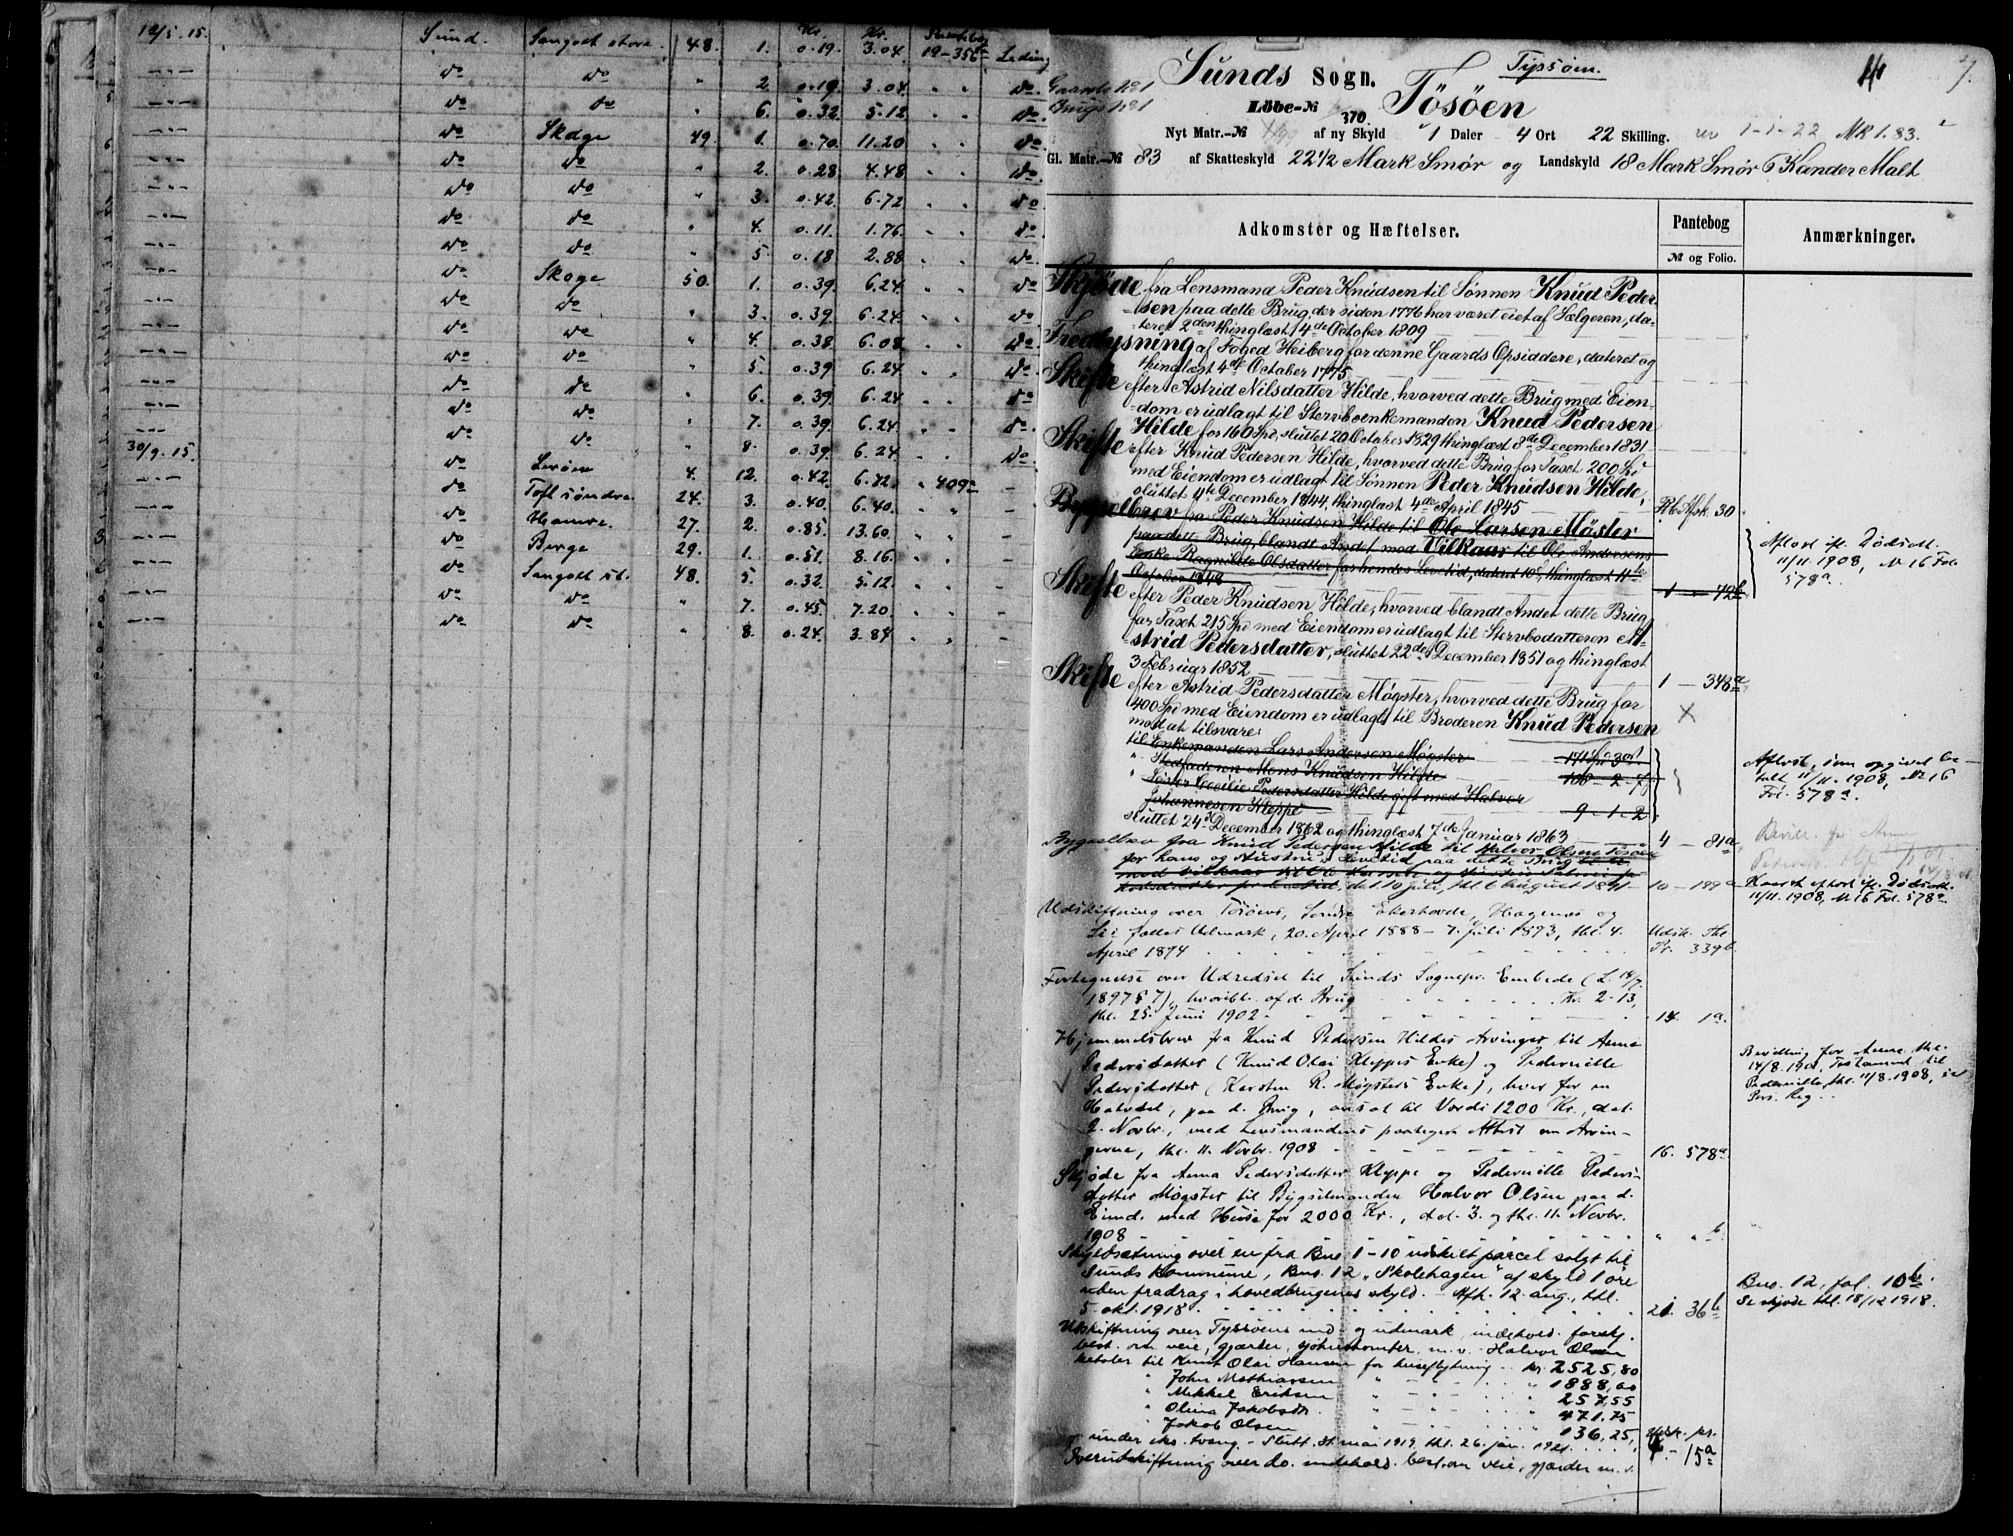 Kr. Kr. Pantebog
12/5.15. Sund. Sangolt store. 48. 1. 0.19. 3.04. 19-356b Leding
—"— do do " 2. 0.19. 3.04. " " do
—"— do do " 6. 0.32. 5.12. " " do
—"— do Skoge 49. 1. 0.70. 11.20 " " do
—"— do do " 2. 0.28. 4.48 " " do
—"— do do " 3. 0.42. 6.72 " " do
—"— do do " 4. 0.11. 1.76. " " do
—"— do do " 5. 0.18 2.88 " " do
—"— do Skoge 50. 1. 0.39. 6.24. " " do
—"— do do " 3. 0.39. 6.24. " " do
—"— do do " 4. 0.38 6.08. " " do
—"— do do " 5. 0.39 6.24. " " do
—"— do do " 6. 0.39. 6.24 " " do
—"— do do " 7. 0.39 6.24. " " do
—"— do do " 8. 0.39. 6.24 " " do
30/9.15. do Lerøen 4. 12. 0.42. 6.72. " 409a —
—"— do Toft søndre. 24. 3. 0.40. 6.40. " " —
—"— do Hamre. 27. 2. 0.85. 13.60. " " —
—"— do Berge 29. 1. 0.51. 8.16. " " —
—"— do Sangolt st. 48. 5. 0.32. 5.12. " " —
—"— do do " 7. 0.45. 7.20. " " —
—"— do do " 8. 0.24. 3.84 " " —
Sunds Sogn. Tyssøen. 7.
Gaards No 1
Brugs No 1
Löbe-№ Tösöen
370.
Nyt Matr.-№ af ny Skyld 1 Daler 4 Ort 22 Skilling. rev 1-1-22 Mk 1.83.
Gl. Matr.-№ 83 af Skatteskyld 22 1/2 Mark Smør og Landskyld 18 Mark Smør 6 Kander Malt
Adkomster og Hæftelser. Pantebog Anmærkninger.
№ og Folio.
Skjöde fra Lensmand Peder Knudsen til Sønnen Knud Peder-
sen paa dette Brug, der siden 1776 har været eiet af Sælgeren, da-
teret 2den thinglæst 4de October 1809
Fredlysning af Foged Heiberg for denne Gaards Opsiddere, dateret og
thinglæst 4de October 1775
Skifte efter Astrid Nilsdatter Hilde, hvorved dette Brug med Eien-
dom er udlagt til Stervboenkemanden Knud Pedersen
Hilde for 160 Spd, sluttet 20 October 1829 thinglæst 8de December 1831
Skifte efter Knud Pedersen Hilde, hvorved dette Brug for Taxt 200 Spd
med Eiendom er udlagt til Sønnen Peder Knudsen Hilde,
sluttet 4te December 1844, thinglæst 4de April 1845 Rb. Afsk. 30
Bygselbrev fra Peder Knudsen Hilde til Ole Larsen Møster
paa dette Brug, blandt Andet med Vilkaar til Ole Andersens
Enke Ragnilde Olsdatter for hendes Levetid, dateret 10de, thinglæst 11te
October 1848 1 — 72b
Aflæst ifl. Dødsatt.
11/11. 1908, No 16 Fol.
578a.
Skifte efter Peder Knudsen Hilde, hvorved blandt Andet dette Brug
for Taxt 215 Spd med Eiendom er udlagt til Stervbodatteren A-
strid Pedersdatter, sluttet 22de December 1851 og thinglæst
3 Februar 1852 1 — 348a
Skifte efter Astrid Pedersdatter Møgster, hvorved dette Brug for
400 Spd med Eiendom er udlagt til Broderen Knud Pedersen
mod at tilsvare:
til Enkemanden Lars Andersen Møgster
" Stedfaderen Mons Knudsen Hilde 108 - 2 - 7
" Søster Cecilie Pedersdatter Hilde gift med Halvor
Johannesen Kleppe 9 - 1 - 2
Aflæst, som opgivet be-
talt 11/11. 1908, No 16
Fol. 578a.
sluttet 24de December 1862 og thinglæst 7de Januar 1863 4 — 81a
Bygselbrev fra Knud Pedersen Hilde til Halvor Olsen Tösöen
for hans og Hustrus Levetid paa dette Brug
dat. 10 Juli, thl. 6 August 1891 10 — 189a
Kaaret aflæst ifl. Dødsatt.
11/11. 1908, No 16 Fol. 578a.
Udskiftning over Tösöens, Søndre Ekerhovde, Hagenæs og
Lie fælles Udmark, 20. April 1888 - 7. Juli 1893, thl. 4.
April 1894 Udsk. Thl. Pr. 339b
Fortegnelse over Udredsel til Sunds Sognepr. Embede (L. 14/7.
1897 § 7), hvoribl. af d. Brug Kr. 2-13,
thl. 25. Juni 1902 14. 1a.
Hjemmelsbrev fra Knud Pedersen Hildes Arvinger til Anna
Pedersdatter (Knud Olai Kleppes Enke) og Pedernille
Pedersdatter (Karsten R. Møgsters Enke), hver for en
Halvdel, paa d. Brug, ansat til Værdi 1200 Kr., dat.
2. Novbr., med Lensmandens paategn. Attest om Arvin-
gerne, thl. 11. Novbr. 1908 16. 578a.
Bevilling for Anna thl.
14/8. 1901, Testament til
Pedernille, thl. 11/8. 1908, se
Pers. Reg.
Skjøde fra Anna Pedersdatter Kleppe og Pedernille Peders-
datter Møgster til Bygselmanden Halvor Olsen paa d.
Eiend. med Huse for 2000 Kr., dat. 3. og thl. 11. Novbr.
1908 " " b.
Skyldsætning over en fra Bno. 1-10 utskilt parcel solgt til
Sunds kommune, Bno. 12 "Skolehagen" af skyld 1 øre
uten fradrag i hovedbrugenes skyld. - Afh. 12. aug., thl.
5 okt. 1918 21. 36b
Bno. 12, fol. 10b.
Se skjøde thl. 18/12 1918.
Utskiftning over Tyssøens ind- og utmark, indehold. forskj.
best. om veie, gjærder, sjøhustomter m.v. Halvor Olsen
betaler til Knut Olai Hansen for husflytning kr. 2525,80
" John Mathiassen " 1888,00
" Mikkel Eriksen " 257,55
" Olina Jakobsdtr. " 471.75
" Jakob Olsen " 136,25,
under eks. tvang. - Slutt. 31 mai 1919, thl. 26. jan. 1921. Utsk. pr.
Overutskiftning over do. indehold. best. om veie, gjærder m.v. 15a